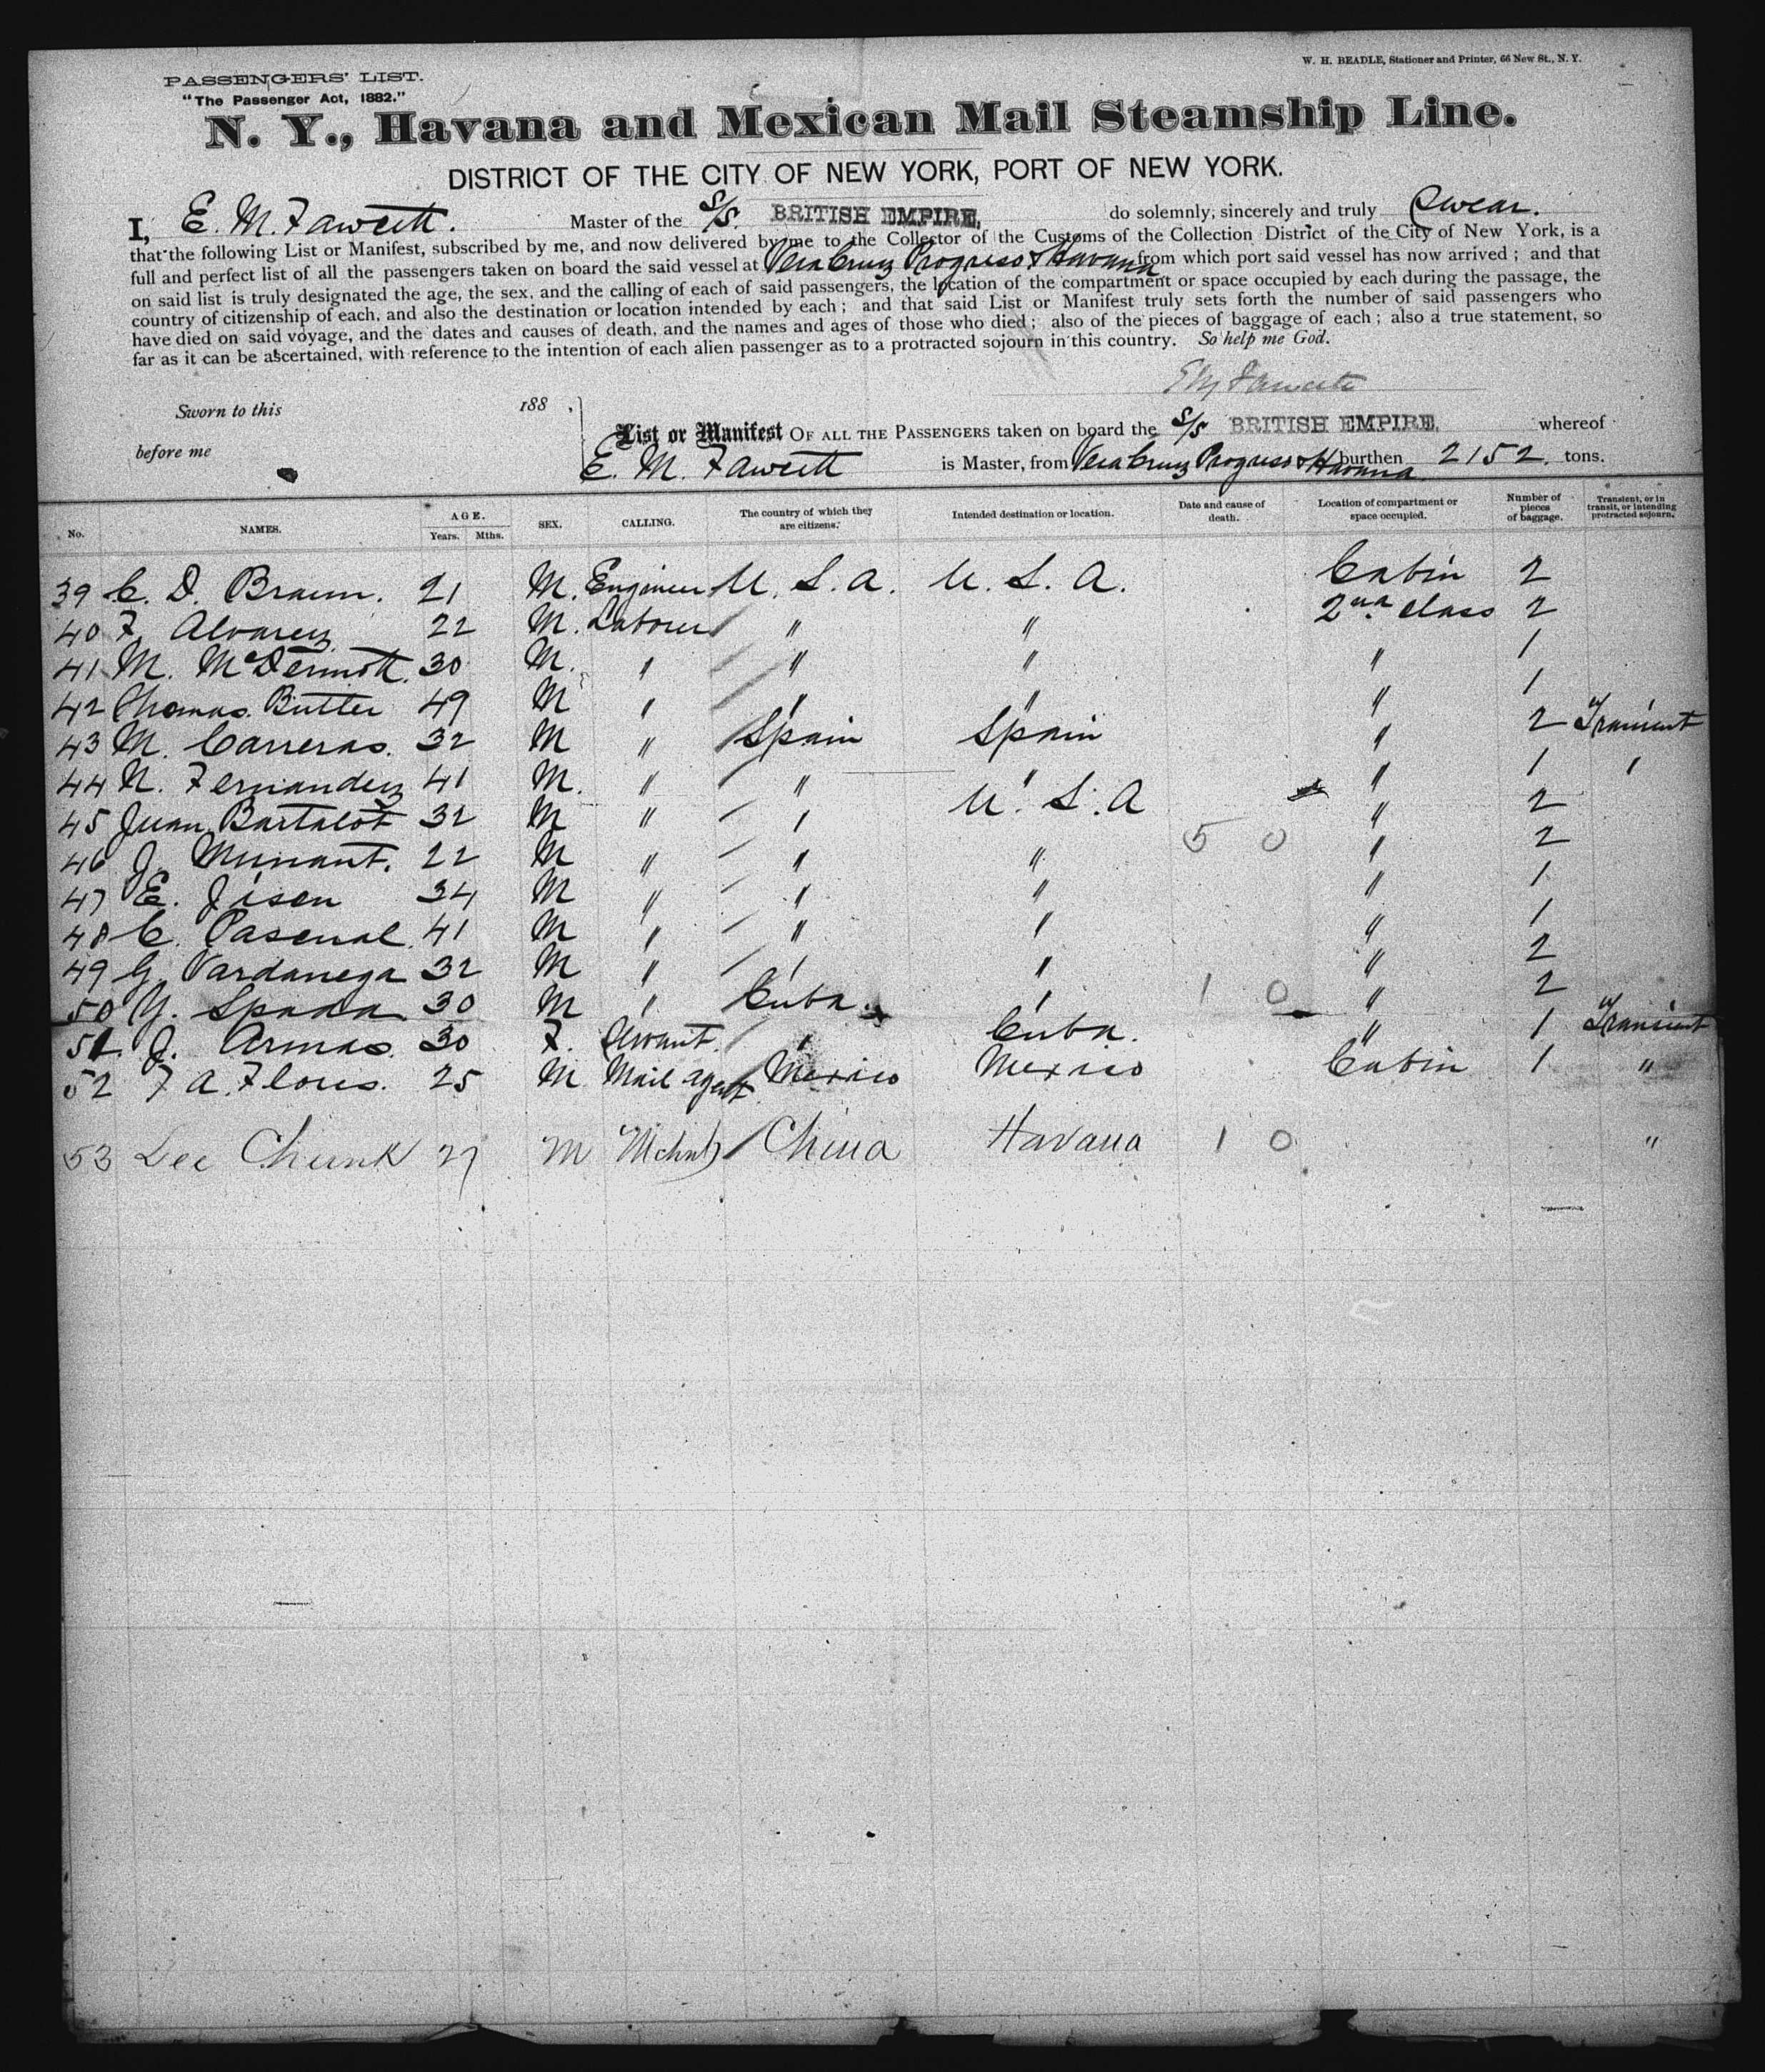 W. H. BEADLE, Stationer and Printer, 66 New St., N. Y.
PASSENGERS' LIST.
"The Passenger Act, 1882."
N. Y., Havana and Mexican Mail Steamship Line.
DISTRICT OF THE CITY OF NEW YORK, PORT OF NEW YORK.
I, E. M. Fawcett. Master of the S/S. BRITISH EMPIRE, do solemnly, sincerely and truly Swear.
that the following List or Manifest, subscribed by me, and now delivered by me to the Collector of the Customs of the Collection District of the City of New York, is a
full and perfect list of all the passengers taken on board the said vessel at Vera Cruz Progreso & Havana from which port said vessel has now arrived ; and that
on said list is truly designated the age, the sex, and the calling of each of said passengers, the location of the compartment or space occupied by each during the passage, the
country of citizenship of each, and also the destination or location intended by each ; and that said List or Manifest truly sets forth the number of said passengers who
have died on said voyage, and the dates and causes of death, and the names and ages of those who died ; also of the pieces of baggage of each ; also a true statement, so
far as it can be ascertained, with reference to the intention of each alien passenger as to a protracted sojourn in this country. So help me God.
E M Fawcett
Sworn to this 188 ,
before me
List or Manifest OF ALL THE PASSENGERS taken on board the S/S BRITISH EMPIRE, whereof
E. M. Fawcett is Master, from Vera Cruz Progreso & Havana burthen 2152. tons.
No. NAMES. AGE. Years. Mths. SEX. CALLING. The country of which they are citizens. Intended destination or location. Date and cause of death. Location of compartment or space occupied. Number of pieces of baggage. Transient, or in transit, or intending protracted sojourn.
39 C. D. Braun. 21 M. Engineer U. S. A. U. S. A. Cabin 2
40 F. Alvarez 22 M. Laborer " " 2nd class 2
41 M. McDermott. 30 M. " " " " 1
42 Thomas Butter 49 M " " " " 1
43 M. Carreras. 32 M " Spain Spain " 2 Transient
44 N. Fernandez 41 M. " " " " 1 "
45 Juan Bartalot 32 M " " U. S. A " 2
46 J. 22 M " " " 5 0 " 2
47 E. Jisen 34 M " " " " 1
48 C. Pascual. 41 M " " " " 1
49 G. Vardanega 32 M " " " " 2
50 Y. Spada 30 M " Cuba. " 1 0 " 2
51. J. Armas. 30 F. Servant. " Cuba. " 1 Transient
52 F A. Flores. 25 M Mail agent Mexico Mexico Cabin 1 "
53 Lee Chunk 27 M Mchnt China Havana 1 0 "